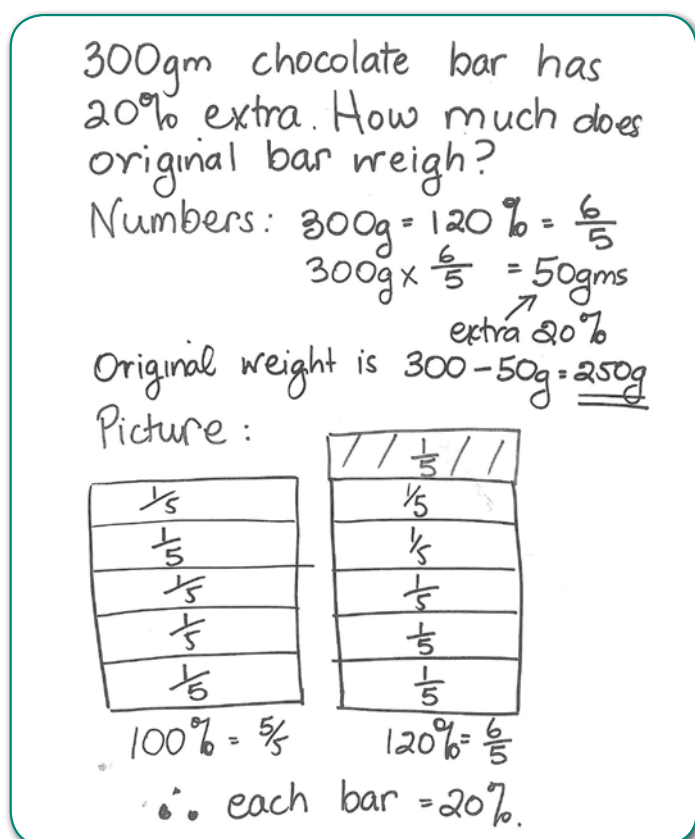 300gm chocolate bar has
20% extra. How much does
original bar weigh?
Numbers: 300g = 120% = 6/5
300g × 6/5 = 50gms
extra 20%
Original weight is 300 - 50g = 250g
Picture:
1/5
1/5
1/5
1/5
1/5
1/5
1/5
1/5
1/5
1/5
1/5
100% = 5/5
120% = 6/5
∴ each bar = 20%.